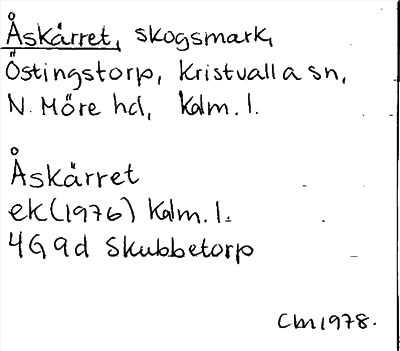 Åskärret, skogsmark,
Östingstorp, Kristvalla sn,
N. Möre hd, Kalm. l.
Åskärret
ek (1976) Kalm. l.
4G 9d Skubbetorp
CM 1978.